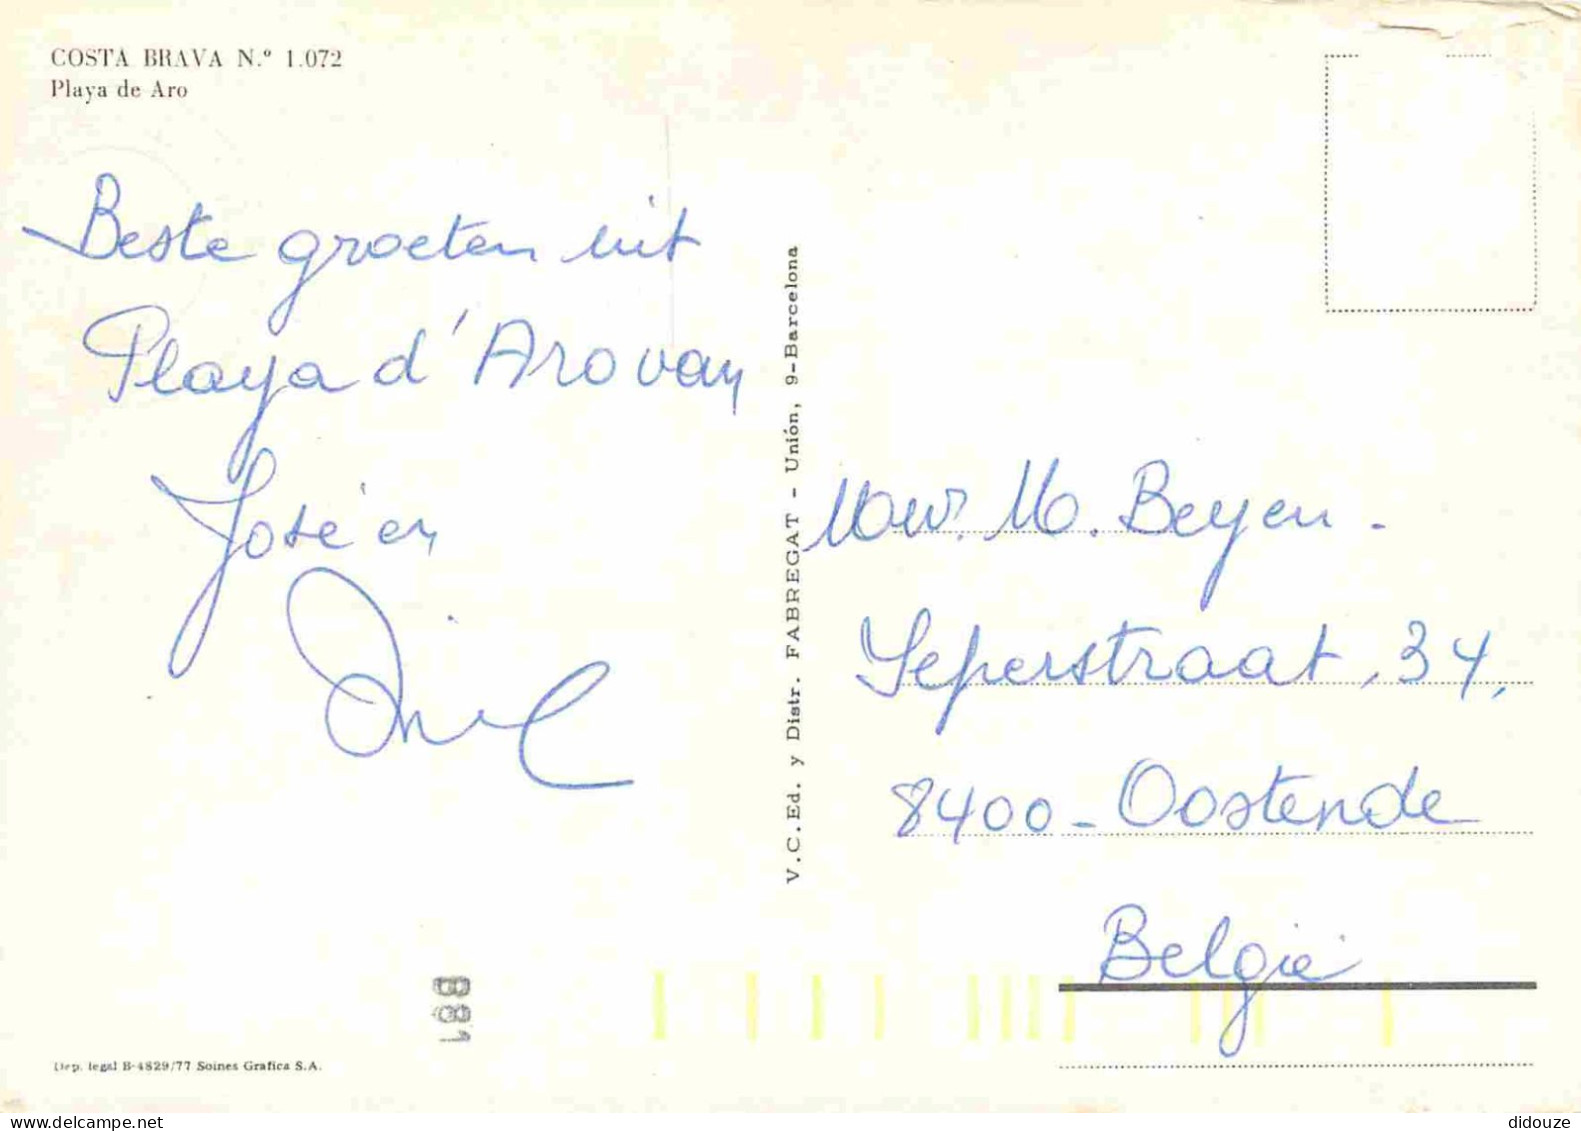 COSTA BRAVA N.º 1.072
Playa de Aro
Beste groeten uit
Playa d'Aro van
José en
V.C.Ed. y Distr. FABREGAT - Unión, 9-Barcelona
Mevr. M. Beyen.
Seperstraat, 34,
8400 - Oostende
België
Dep. legal B-4829/77 Soines Grafica S.A.
delcampe.net
didouze